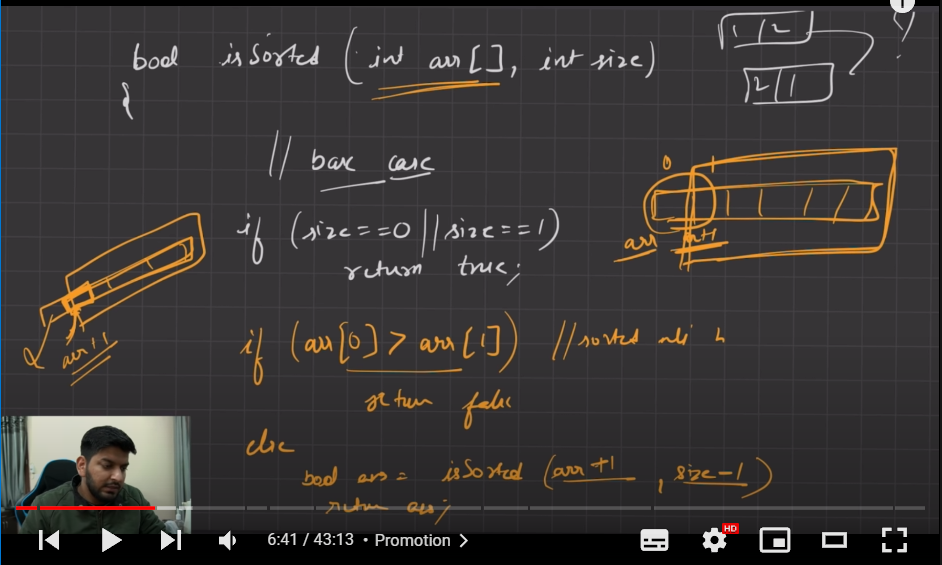 1 2
bool isSorted (int arr[], int size)
{
2 1
// base case
0 1
if (size==0 || size==1)
arr arr+1
return true;
if (arr[0] > arr[1]) // sorted nhi h
arr+1
return false
else
bool ans = isSorted (arr+1, size-1)
return ans;
6:41 / 43:13 • Promotion >
HD